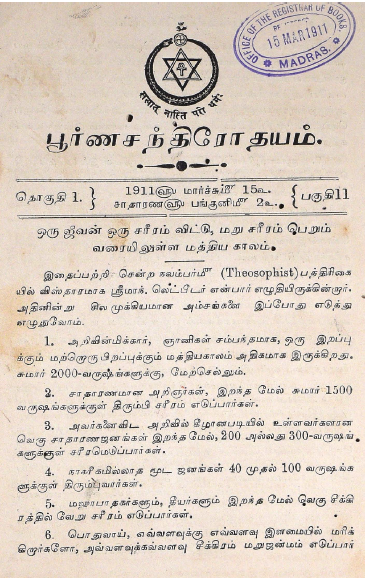 OFFICE OF THE REGISTRAR OF BOOKS
15 MAR 1911
MADRAS.
பூர்ணசந்திரோதயம்.
தொகுதி 1. } 1911௵ மார்ச்சு௴ 15௳ { பகுதி 11
சாதாரண௵ பங்குனி௴ 2௳
ஒரு ஜீவன் ஒரு சரீரம் விட்டு, மறு சரீரம் பெறும்
வரையிலுள்ள மத்திய காலம்.
இதைப்பற்றி சென்ற நவம்பர்௴ (Theosophist) பத்திரிகை
யில் விஸ்தாரமாக ஸ்ரீமாந். லெட்பீடர் என்பார் எழுதியிருக்கின்றார்.
அதினின்று சில முக்கியமான அம்சங்களை இப்போது எடுத்து
எழுதுவோம்.
1. அறிவின்மிக்கார், ஞானிகள் சம்பந்தமாக, ஒரு இறப்பு
க்கும் மற்றொரு பிறப்புக்கும் மத்தியகாலம் அதிகமாக இருக்கிறது.
சுமார் 2000-வருஷங்களுக்கு, மேற்செல்லும்.
2. சாதாரணமான அறிஞர்கள், இறந்த மேல் சுமார் 1500
வருஷங்களுக்குள் திரும்பி சரீரம் எடுப்பார்கள்.
3. அவர்களைவிட அறிவில் கீழானபடியில் உள்ளவர்களான
வெகு சாதாரணஜனங்கள் இறந்த மேல், 200 அல்லது 300-வருஷங்
களுக்குள் சரீரமெடுப்பார்கள்.
4. நாகரிகமில்லாத மூட ஜனங்கள் 40 முதல் 100 வருஷங்க
ளுக்குள் திரும்புவார்கள்.
5. மஹாபாதகர்களும், தீயர்களும் இறந்த மேல் வெகு சீக்கி
ரத்தில் வேறு சரீரம் எடுப்பார்கள்.
6. பொதுவாய், எவ்வளவுக்கு எவ்வளவு இளமையில் மரிக்
கிறார்களோ, அவ்வளவுக்கவ்வளவு சீக்கிரம் மறுஜன்மம் எடுப்பார்